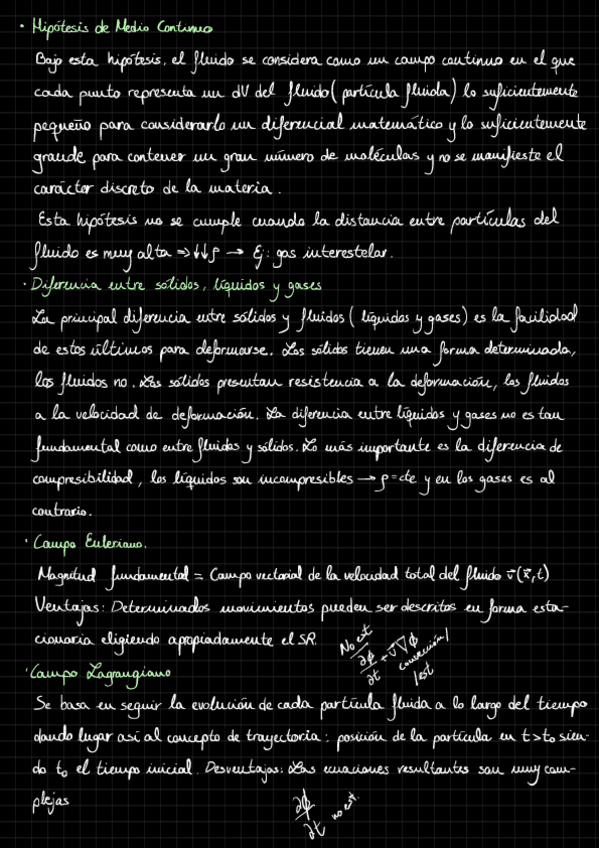 · Hipótesis de Medio Continuo
Bajo esta hipótesis, el fluido se considera como un campo continuo en el que
cada punto representa un dV del fluido (partícula fluida) lo suficientemente
pequeño para considerarlo un diferencial matemático y lo suficientemente
grande para contener un gran número de moléculas y no se manifieste el
carácter discreto de la materia.
Esta hipótesis no se cumple cuando la distancia entre partículas del
fluido es muy alta ⇒ ↓↓ρ → Ej: gas interestelar.
· Diferencia entre sólidos, líquidos y gases
La principal diferencia entre sólidos y fluidos (líquidos y gases) es la facilidad
de estos últimos para deformarse. Los sólidos tienen una forma determinada,
los fluidos no. Los sólidos presentan resistencia a la deformación, los fluidos
a la velocidad de deformación. La diferencia entre líquidos y gases no es tan
fundamental como entre fluidos y sólidos. Lo más importante es la diferencia de
compresibilidad, los líquidos son incompresibles → ρ = cte y en los gases es al
contrario.
· Campo Euleriano.
Magnitud fundamental = Campo vectorial de la velocidad total del fluido v⃗(x⃗,t)
Ventajas: Determinados movimientos pueden ser descritos en forma esta-
cionaria eligiendo apropiadamente el SR.
No est
∂ϕ/∂t + v⃗∇ϕ
convección/
/est
· Campo Lagrangiano
Se basa en seguir la evolución de cada partícula fluida a lo largo del tiempo
dando lugar así al concepto de trayectoria: posición de la partícula en t>to sien-
do to el tiempo inicial. Desventajas: Las ecuaciones resultantes son muy com-
plejas
∂ϕ/∂t no est.